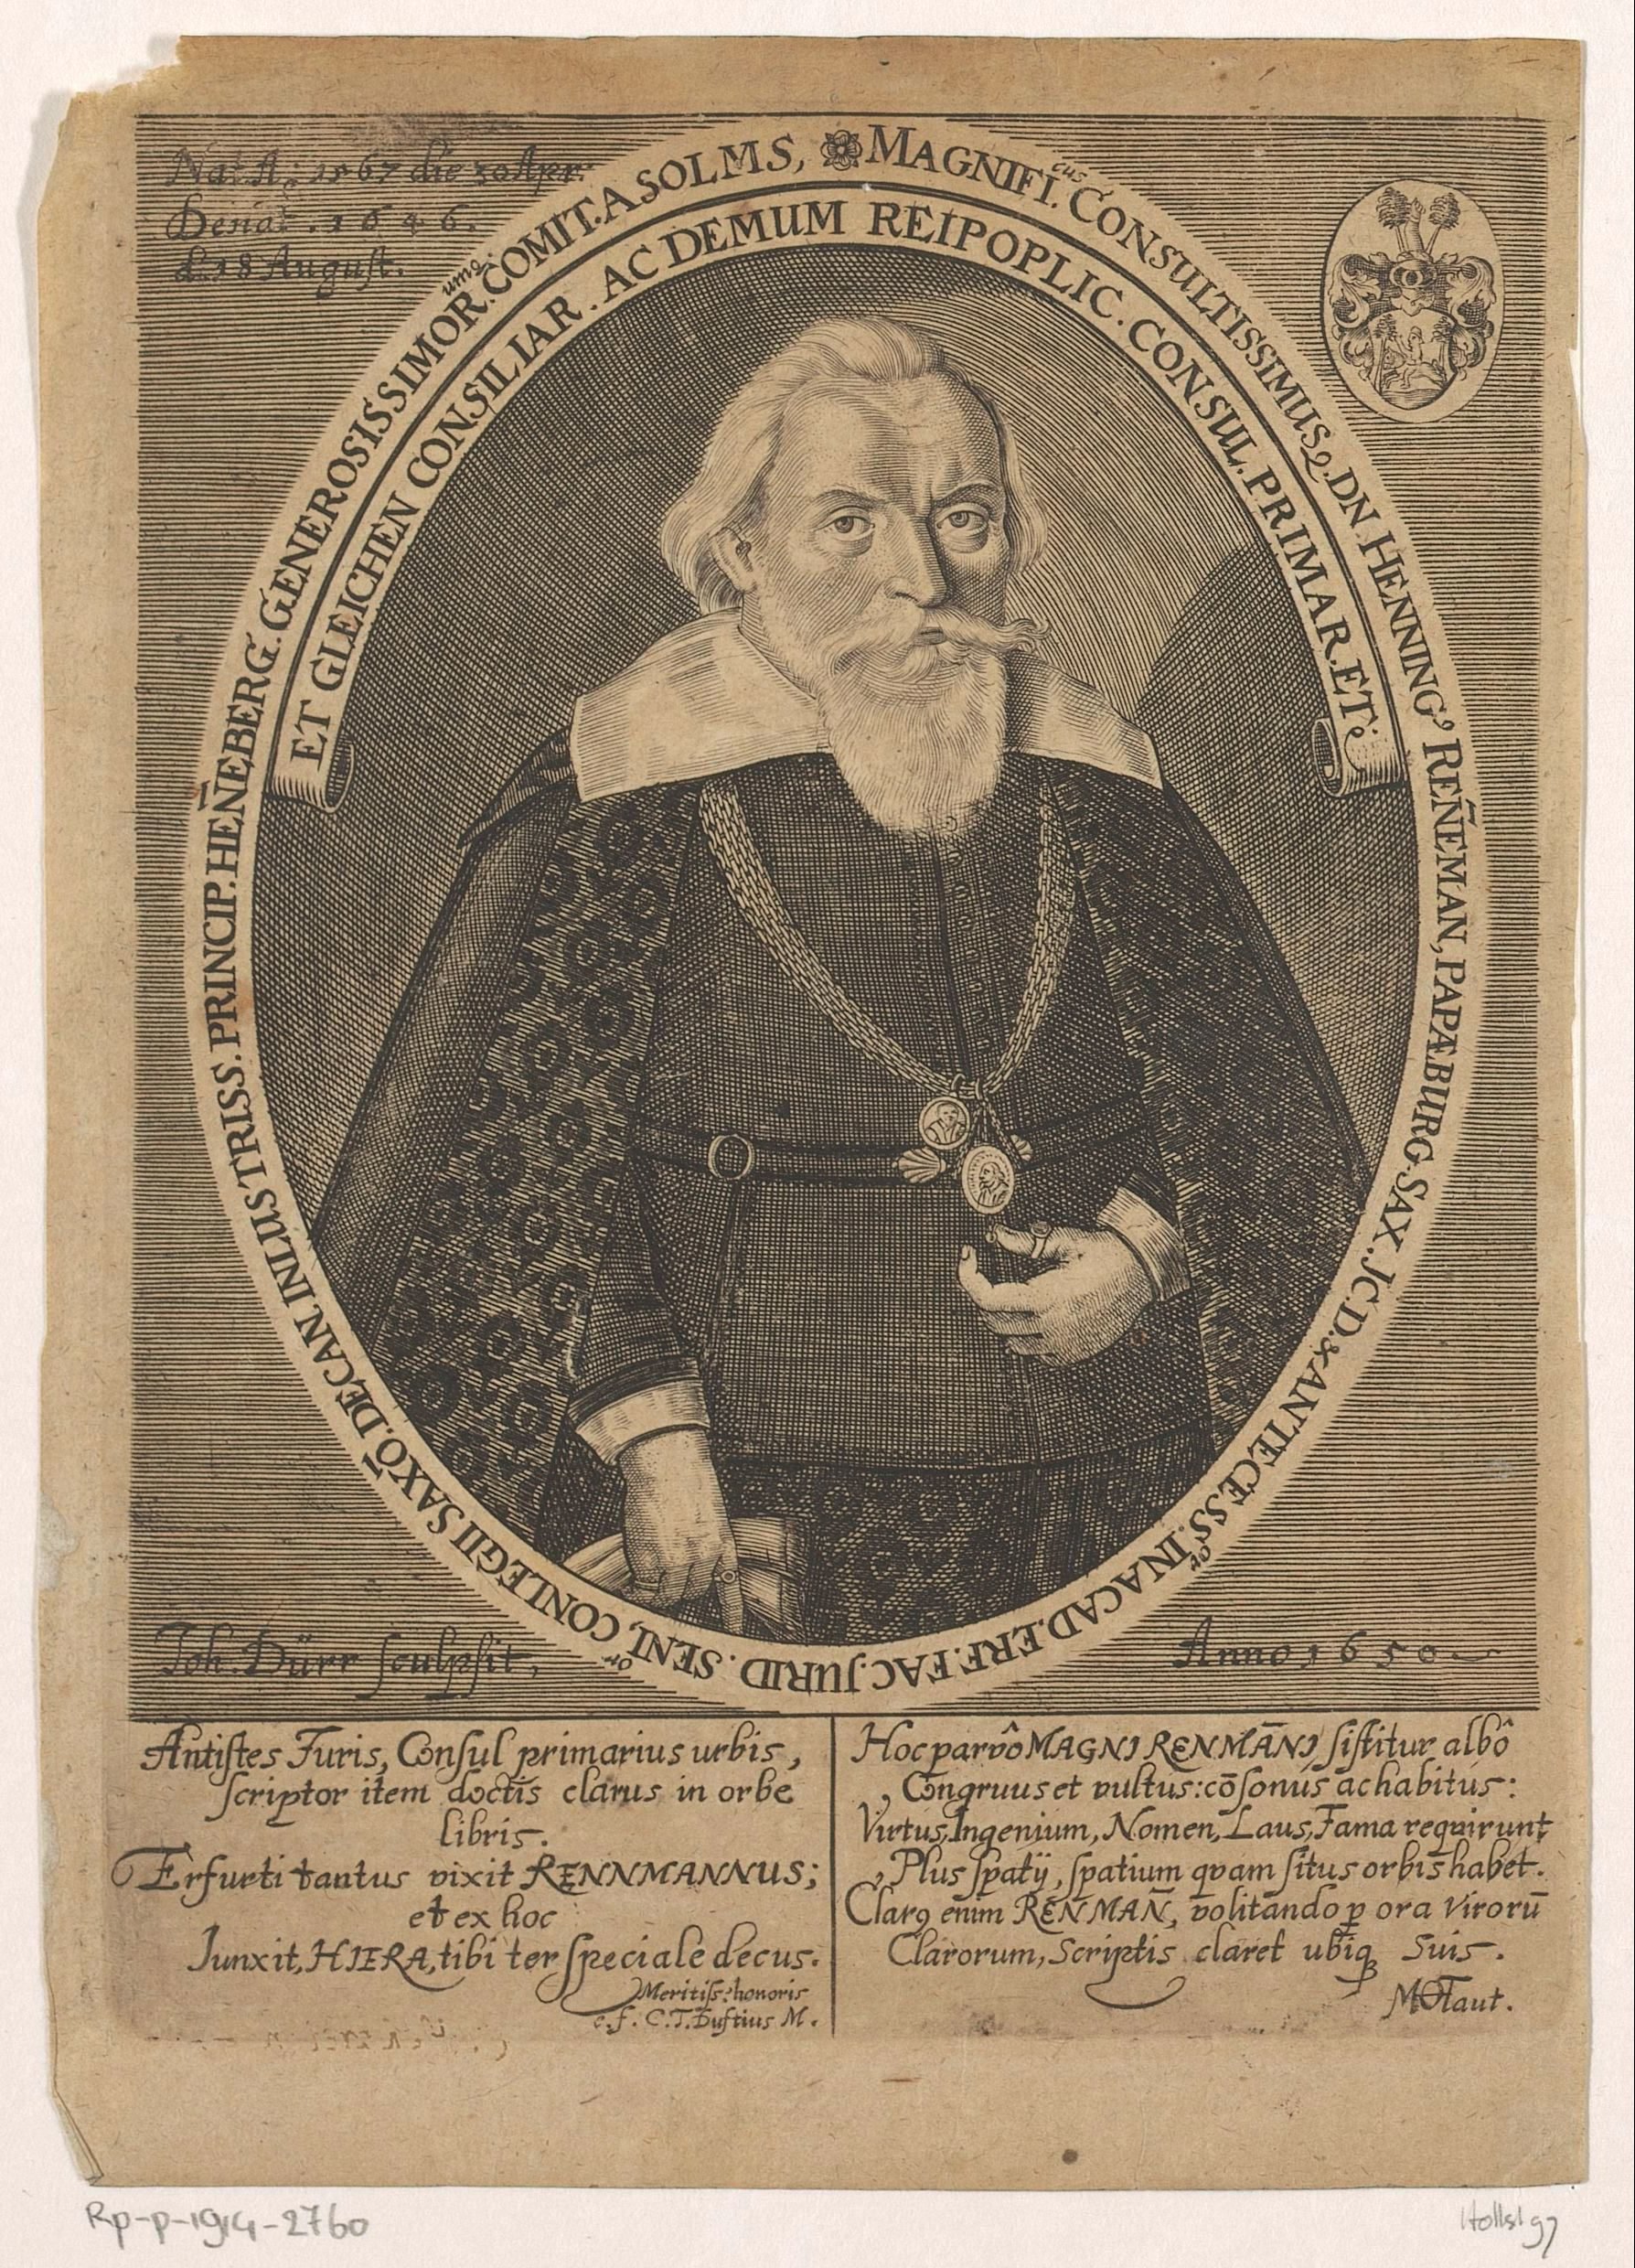 Nat. A. 1567 die 30 Apr.
Denat. 1646.
d. 18 August.
MAGNIFI.cus CONSULTISSIMUSQ. DN. HENNING' REN̄EMAN, PAPÆBURG. SAX. JC. D. & ANTECESS.or IN ACAD. ERF. FAC. JURID. SENI,or CONLEGII SAXŌ. DECAN. INLUSTRISS. PRINCIP. HEN̄EBERG. GENEROSISSIMOR.umq. COMIT. A SOLMS,
ET GLEICHEN CONSILIAR. AC DEMUM REIPOPLIC. CONSUL. PRIMAR. ET
Joh. Dürr sculpsit,
Anno 1650
Antistes Juris, Consul primarius urbis,
scriptor item doctis clarus in orbe
libris.
Erfurti tantus vixit RENNMANNUS;
et ex hoc
Junxit, HIERA, tibi ter speciale decus.
Meritiss: honoris
e. f. C.T. Duftius M.
Hoc parvô MAGNI RENMĀNI sistitur albô
Congruus et vultus: cōsonus ac habitus:
Virtus, Ingenium, Nomen, Laus, Fama requirunt
Plus spatij, spatium qvam situs orbis habet.
Clarq enim RENMAN̄, volitando p ora Virorū
Clarorum, Scriptis claret ubiq Suis.
MOTaut.
Rp-p-1914-2760
Hollst 97